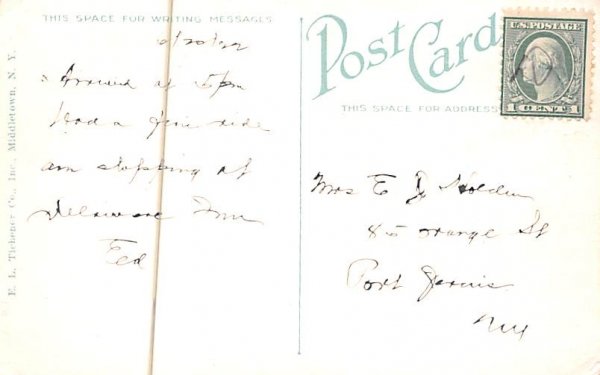 THIS SPACE FOR WRITING MESSAGES
Arrived at 5 pm
Had a fine ride
am stopping at
Delaware Inn
Ted
E. L. Tichenor Co., Inc., Middletown, N. Y.
Post Card
THIS SPACE FOR ADDRESS
U.S. POSTAGE
1 CENT 1
Mrs E J Holden
85 orange St
Port Jervis
N Y